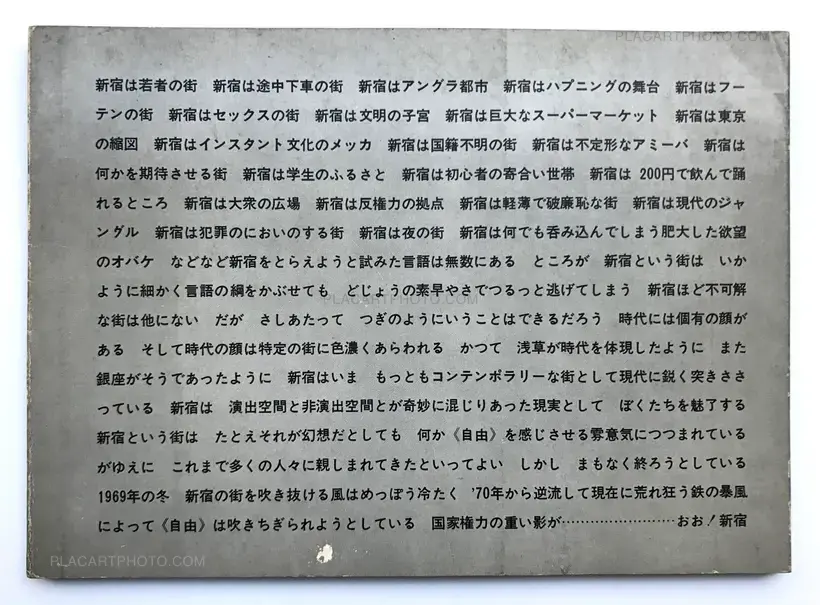 PLACARTPHOTO.COM
新宿は若者の街　新宿は途中下車の街　新宿はアングラ都市　新宿はハプニングの舞台　新宿はフー
テンの街　新宿はセックスの街　新宿は文明の子宮　新宿は巨大なスーパーマーケット　新宿は東京
の縮図　新宿はインスタント文化のメッカ　新宿は国籍不明の街　新宿は不定形なアミーバ　新宿は
何かを期待させる街　新宿は学生のふるさと　新宿は初心者の寄合い世帯　新宿は 200円で飲んで踊
れるところ　新宿は大衆の広場　新宿は反権力の拠点　新宿は軽薄で破廉恥な街　新宿は現代のジャ
ングル　新宿は犯罪のにおいのする街　新宿は夜の街　新宿は何でも呑み込んでしまう肥大した欲望
のオバケ　などなど新宿をとらえようと試みた言語は無数にある　ところが　新宿という街は　いか
ように細かく言語の綱をかぶせても　どじょうの素早やさでつるっと逃げてしまう　新宿ほど不可解
PLACARTPHOTO.COM
な街は他にない　だが　さしあたって　つぎのようにいうことはできるだろう　時代には個有の顔が
ある　そして時代の顔は特定の街に色濃くあらわれる　かつて　浅草が時代を体現したように　また
銀座がそうであったように　新宿はいま　もっともコンテンポラリーな街として現代に鋭く突きささ
っている　新宿は　演出空間と非演出空間とが奇妙に混じりあった現実として　ぼくたちを魅了する
新宿という街は　たとえそれが幻想だとしても　何か《自由》を感じさせる雰意気につつまれている
がゆえに　これまで多くの人々に親しまれてきたといってよい　しかし　まもなく終ろうとしている
1969年の冬　新宿の街を吹き抜ける風はめっぽう冷たく　'70年から逆流して現在に荒れ狂う鉄の暴風
によって《自由》は吹きちぎられようとしている　国家権力の重い影が……………………おお！新宿
PLACARTPHOTO.COM